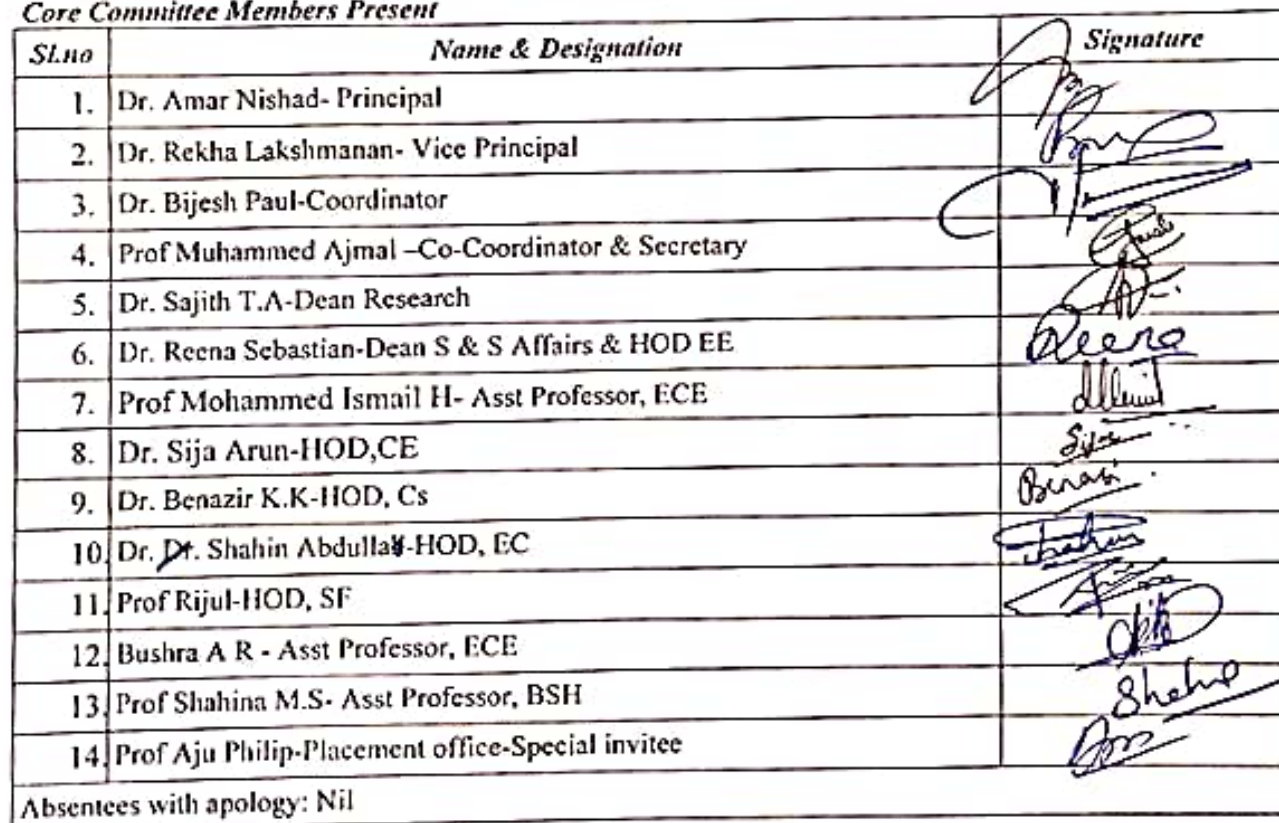 Core Committee Members Present
Sl.no Name & Designation Signature
1. Dr. Amar Nishad- Principal
2. Dr. Rekha Lakshmanan- Vice Principal
3. Dr. Bijesh Paul-Coordinator
4. Prof Muhammed Ajmal –Co-Coordinator & Secretary
5. Dr. Sajith T.A-Dean Research
6. Dr. Reena Sebastian-Dean S & S Affairs & HOD EE Reena
7. Prof Mohammed Ismail H- Asst Professor, ECE
8. Dr. Sija Arun-HOD,CE Sija
9. Dr. Benazir K.K-HOD, Cs
10. Dr. Dr. Shahin Abdulla-HOD, EC
11. Prof Rijul-HOD, SF
12. Bushra A R - Asst Professor, ECE
13. Prof Shahina M.S- Asst Professor, BSH
14. Prof Aju Philip-Placement office-Special invitee
Absentees with apology: Nil